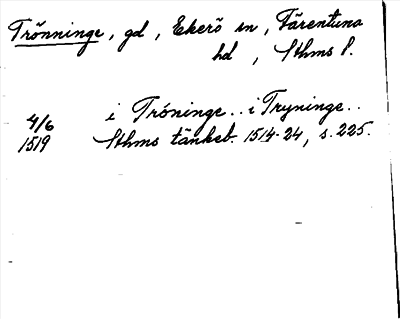 Trönninge, gd, Ekerö sn, Färentuna
hd, Sthms l.
4/6 i Tröninge.. i Tryninge..
1519 Sthms tänkeb. 1514-24, s. 225.